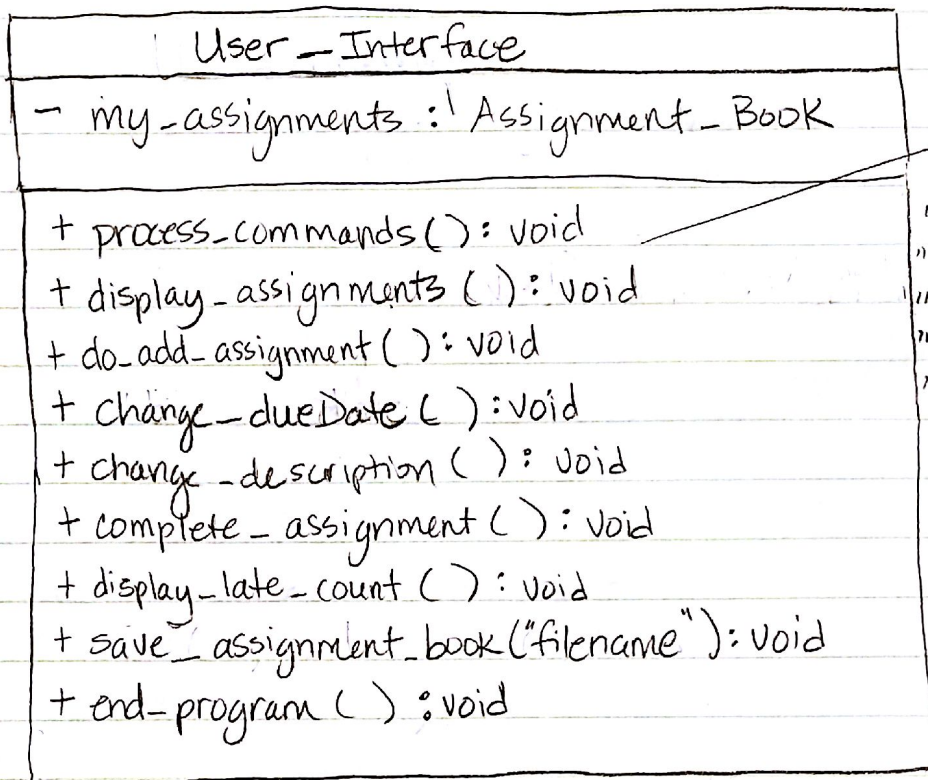 User_Interface
- my_assignments : Assignment_Book
+ process_commands(): void
+ display_assignments( ): void
+ do_add_assignment( ): void
+ change_dueDate( ): void
+ change_description( ): void
+ complete_assignment( ): void
+ display_late_count( ): void
+ save_assignment_book("filename"): void
+ end_program( ): void